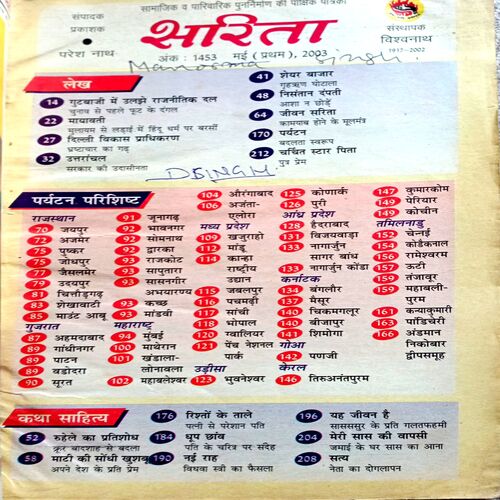 सामाजिक व पारिवारिक पुनर्निर्माण की पाक्षिक पत्रिका
संपादक
प्रकाशक
परेश नाथ
सरिता
अंक : 1453 मई (प्रथम), 2003
संस्थापक
विश्वनाथ
1917-2002
Manorma Singh
लेख
14 गुटबाजी में उलझे राजनीतिक दल
चुनाव से पहले फूट के दंगल
22 मायावती
मुलायम से लड़ाई में हिंदू धर्म पर बरसीं
27 दिल्ली विकास प्राधिकरण
भ्रष्टाचार का गढ़
32 उत्तरांचल
सरकार की उदासीनता
41 शेयर बाजार
गृहऋण घोटाला
48 निसंतान दंपती
आशा न छोड़ें
64 जीवन सरिता
कामयाब होने के मूलमंत्र
170 पर्यटन
बदलता स्वरूप
212 चर्चित स्टार पिता
पुत्र प्रेम
DSINGH
पर्यटन परिशिष्ट
राजस्थान
70 जयपुर
72 अजमेर
73 पुष्कर
75 जोधपुर
77 जैसलमेर
79 उदयपुर
81 चित्तौड़गढ़
83 शेखावाटी
85 माउंट आबू
गुजरात
87 अहमदाबाद
89 गांधीनगर
89 पाटन
89 वडोदरा
90 सूरत
91 जूनागढ़
92 भावनगर
92 सोमनाथ
92 द्वारका
93 राजकोट
93 सापुतारा
93 सासनगीर
अभयारण्य
93 कच्छ
93 मांडवी
महाराष्ट्र
94 मुंबई
100 माथेरान
101 खंडाला-
लोनावला
102 महाबलेश्वर
104 औरंगाबाद
106 अजंता-
एलोरा
मध्य प्रदेश
109 खजुराहो
112 मांडू
114 कान्हा
राष्ट्रीय
उद्यान
115 जबलपुर
116 पचमढ़ी
117 सांची
118 भोपाल
120 ग्वालियर
121 पेंच नेशनल
पार्क
उड़ीसा
123 भुवनेश्वर
125 कोणार्क
126 पुरी
आंध्र प्रदेश
128 हैदराबाद
131 विजयवाड़ा
133 नागार्जुन
सागर बांध
133 नागार्जुन कोंडा
कर्नाटक
134 बंगलौर
137 मैसूर
140 चिकमगलूर
140 बीजापुर
141 शिमोगा
गोआ
142 पणजी
केरल
146 तिरुअनंतपुरम
147 कुमारकोम
149 पेरियार
149 कोचीन
तमिलनाडु
152 चेन्नई
154 कोडैकनाल
156 रामेश्वरम
157 ऊटी
159 तंजावूर
159 महाबली-
पुरम
161 कन्याकुमारी
163 पांडिचेरी
166 अंडमान
निकोबार
द्वीपसमूह
कथा साहित्य
52 रुहेले का प्रतिशोध
क्रूर बादशाह से बदला
58 माटी की सोंधी खुशबू
अपने देश के प्रति प्रेम
176 रिश्तों के ताले
पत्नी से परेशान पति
184 धूप छांव
पति के चरित्र पर संदेह
190 नई राह
विधवा स्त्री का फैसला
196 यह जीवन है
सासससुर के प्रति गलतफहमी
204 मेरी सास की वापसी
जमाई के घर सास का आना
208 सत्य
नेता का दोगलापन